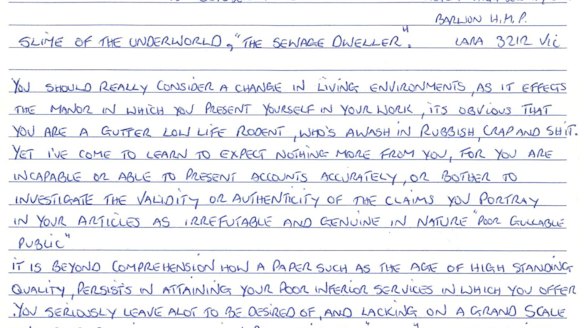 BARWON H.M.P.
SLIME OF THE UNDERWORLD, "THE SEWAGE DWELLER". LARA 3212 VIC
YOU SHOULD REALLY CONSIDER A CHANGE IN LIVING ENVIRONMENTS, AS IT EFFECTS
THE MANOR IN WHICH YOU PRESENT YOURSELF IN YOUR WORK, ITS OBVIOUS THAT
YOU ARE A GUTTER LOW LIFE RODENT, WHO'S AWASH IN RUBBISH, CRAP AND SHIT.
YET I'VE COME TO LEARN TO EXPECT NOTHING MORE FROM YOU, FOR YOU ARE
INCAPABLE OR ABLE TO PRESENT ACCOUNTS ACCURATELY, OR BOTHER TO
INVESTIGATE THE VALIDITY OR AUTHENTICITY OF THE CLAIMS YOU PORTRAY
IN YOUR ARTICLES AS IRREFUTABLE AND GENUINE IN NATURE "POOR GULLABLE
PUBLIC"
IT IS BEYOND COMPREHENSION HOW A PAPER SUCH AS THE AGE OF HIGH STANDING
QUALITY, PERSISTS IN ATTAINING YOUR POOR INFERIOR SERVICES IN WHICH YOU OFFER
YOU SERIOUSLY LEAVE ALOT TO BE DESIRED OF, AND LACKING ON A GRAND SCALE